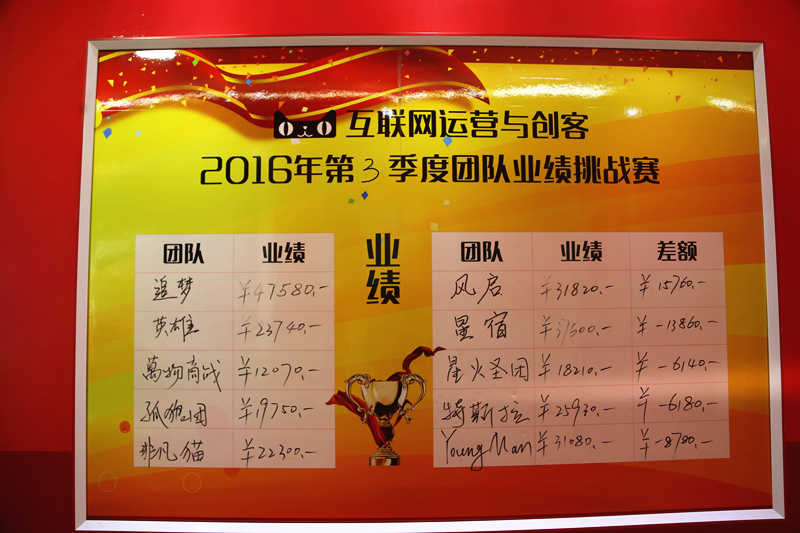 互联网运营与创客
2016年第3季度团队业绩挑战赛
业绩
团队 业绩
追梦 ¥47580.-
英雄 ¥23740.-
萬物商战 ¥12070.-
孤狼团 ¥19750.-
非凡猫 ¥22300.-
团队 业绩 差额
风启 ¥31820.- ¥15760.-
星宿 ¥37600.- ¥-13860.-
星火圣团 ¥18210.- ¥-6140.-
特斯拉 ¥25930.- ¥-6180.-
Young Man ¥31080.- ¥-8780.-